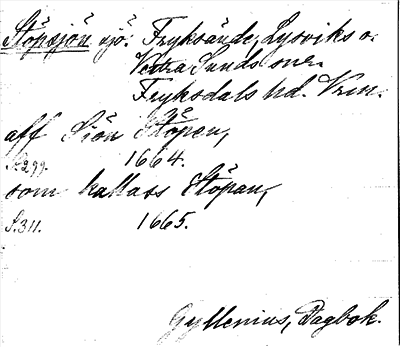 Stöpsjön sjö. Fryksände, Lysviks o.
Västra Ämtervik snr.
Fryksdals hd. Vrm.
aff Siön Stöpen,
S. 299. 1664.
som kallass Stöpan,
S. 311. 1665.
Gyllenius, Dagbok.